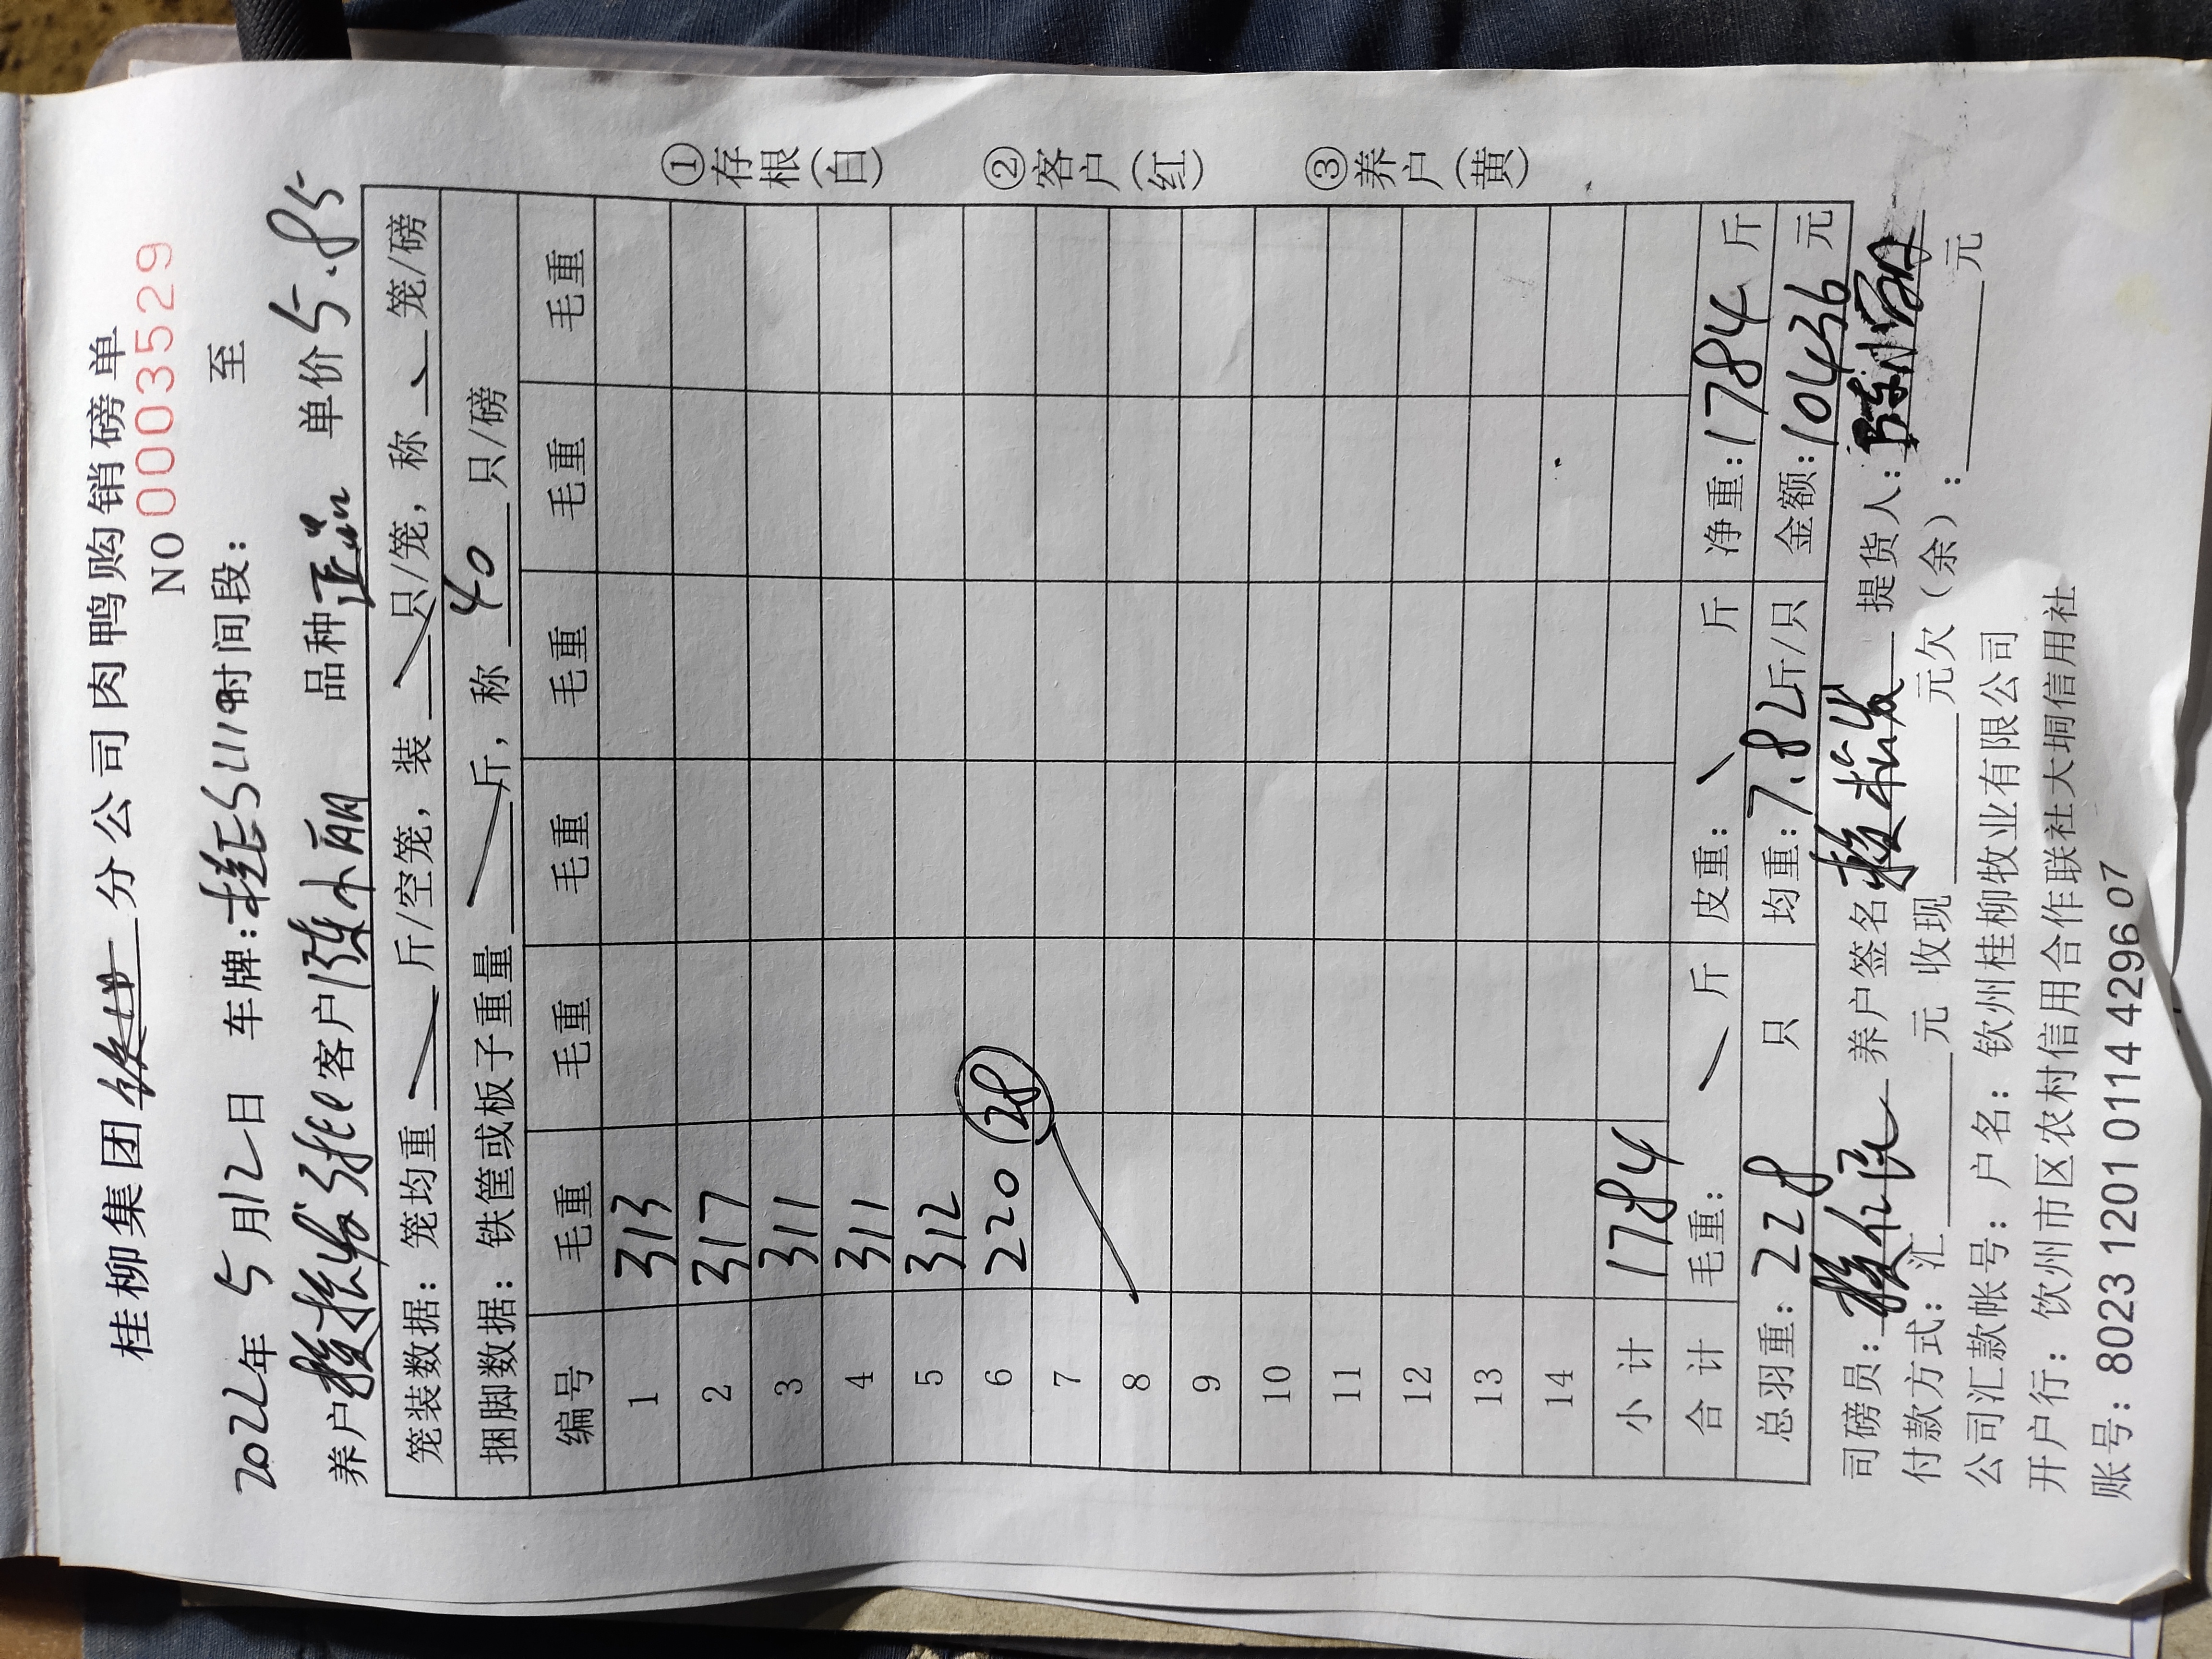 桂柳集团 分公司肉鸭购销磅单
NO 0003529
2022年 5月12日 车牌:桂E5U119时间段: 至
养户 客户陈小丽 品种正品 单价5.85
笼装数据:笼均重 斤/空笼,装 只/笼,称 笼/磅
捆脚数据:铁筐或板子重量 斤,称 40 只/磅
编号 毛重 毛重 毛重 毛重 毛重 毛重
1 313
2 317
3 311
4 311
5 312
6 220 28
7
8
9
10
11
12
13
14
小计 1784
合计 毛重: 斤 皮重: 斤 净重:1784 斤
总羽重:228 只 均重:7.82斤/只 金额:10436 元
司磅员: 养户签名 提货人:
付款方式:汇 元 收现 元欠(余): 元
公司汇款帐号:户名:钦州桂柳牧业有限公司
开户行:饮州市区农村信用合作联社大垌信用社
账号:8023 1201 0114 4296 07
①存根(白) ②客户(红) ③养户(黄)